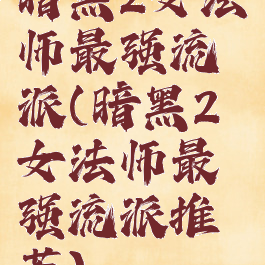 暗黑2女法
师最强流
派(暗黑2
女法师最
强流派推
荐)